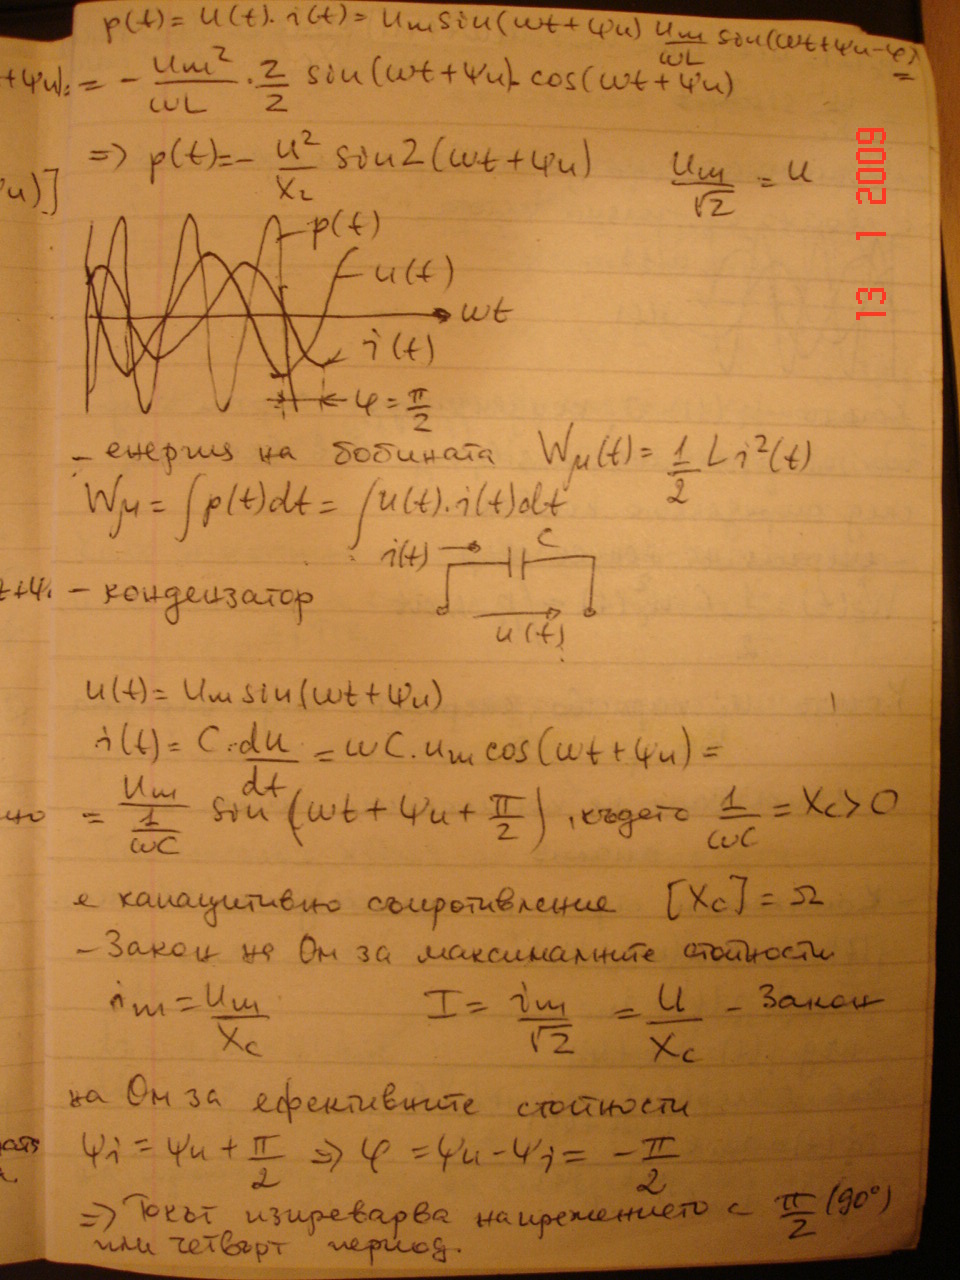 p(t) = u(t). i(t) = Um sin(ωt + ψu) Um/ωL sin(ωt+ψu-φ) =
+ψu).
= - Um²/ωL . 2/2 sin(ωt+ψu). cos(ωt+ψu)
=> p(t) = - U²/XL sin2(ωt+ψu) Um/√2 = U
ψu)]
p(t)
u(t)
ωt
i(t)
φ = π/2
- енергия на бобината Wμ(t) = 1/2 L i²(t)
Wμ = ∫p(t)dt = ∫u(t).i(t)dt
i(t) C
- кондензатор
u(t)
u(t) = Um sin(ωt+ψu)
i(t) = C.du/dt = ωC.Um cos(ωt+ψu) =
= Um/(1/ωC) sin(ωt + ψu + π/2), където 1/ωC = Xc > 0
е капацитивно съпротивление [Xc] = Ω
- Закон на Ом за максималните стойности
im = Um/Xc I = im/√2 = U/Xc - Закон
на Ом за ефективните стойности
ψi = ψu + π/2 => φ = ψu - ψi = - π/2
=> Токът изпреварва напрежението с π/2 (90°)
или четвърт период.
13 1 2009